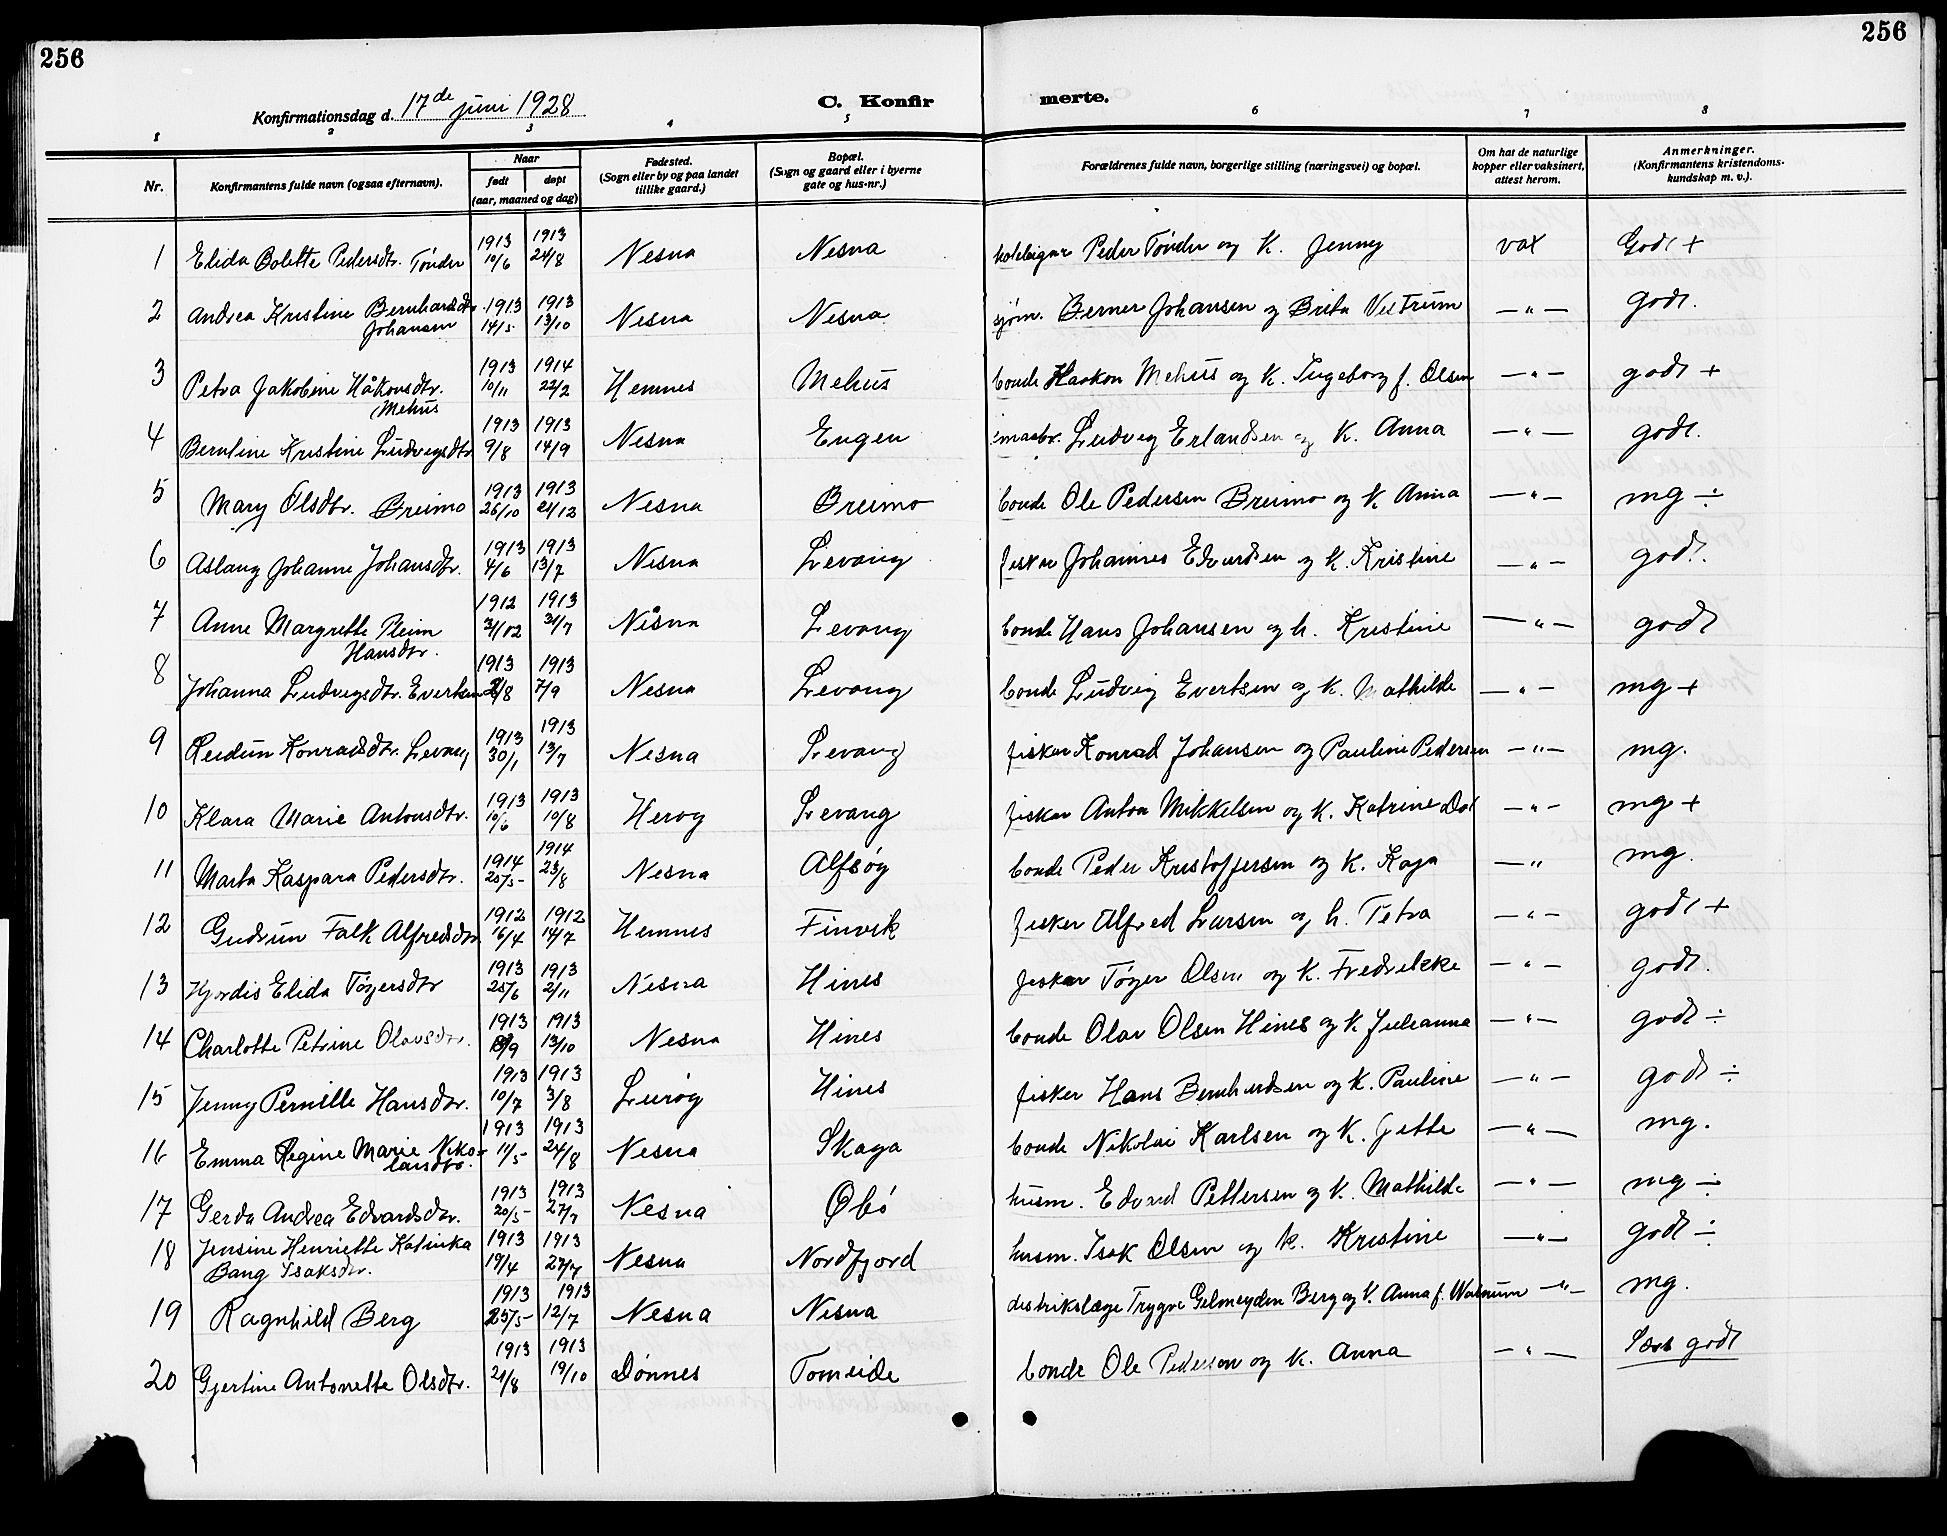 256
256
Konfirmationsdag d. 17de juni 1928
C. Konfirmerte.
1 2 3 4 5 6 7 8
Nr.
Konfirmantens fulde navn (ogsaa efternavn).
Naar
født
døpt
(aar, maaned og dag)
Fødested.
(Sogn eller by og paa landet
tillike gaard.)
Bopæl.
(Sogn og gaard eller i byerne
gate og hus-nr.)
Forældrenes fulde navn, borgerlige stilling (næringsvei) og bopæl.
Om hat de naturlige
kopper eller vaksinert,
attest herom.
Anmerkninger.
(Konfirmantens kristendoms-
kundskap m. v.).
1 Elida Bolette Pedersdtr. Tønder 1913 10/6 1913 24/8 Nesna Nesna Peder Tønder og k. Jenny vax Godt +
2 Andrea Kristine Bernhardsdtr Johansen 1913 14/5 1913 13/10 Nesna Nesna sjøm. Berner Johansen og Brita Vestrum —"— godt.
3 Petra Jakobine Håkonsdtr. Mehus 1913 10/11 1914 22/2 Hemnes Mehus bonde Haakon Mehus og k. Ingeborg f. Olsen —"— godt +
4 Berntine Kristine Ludvigsdtr 1913 9/8 1913 14/9 Nesna Engen Ludvig Erlandsen og k. Anna —"— godt.
5 Mary Olsdtr. Breimo 1913 26/10 1913 24/12 Nesna Breimo bonde Ole Pedersen Breimo og k Anna —"— mg ÷
6 Aslaug Johanne Johansdtr. 1913 4/6 1913 13/7 Nesna Levang fisker Johannes Edvardsen og k. Kristine —"— godt.
7 Anne Margrethe Pleim Hansdtr. 1912 31/12 1913 31/7 Nesna Levang bonde Hans Johansen og h. Kristine —"— godt
8 Johanna Ludvigsdtr. Evertsen 1913 1913 7/9 Nesna Levang bonde Ludvig Evertsen og k. Mathilde —"— mg +
9 Reidun Konradsdtr. Levang 1913 30/1 1913 13/7 Nesna Levang fisker Konrad Johansen og Pauline Pedersen —"— mg.
10 Klara Marie Antonsdtr. 1913 10/6 1913 10/8 Herøy Levang fisker Anton Mikkelsen og k. Katrine Dot —"— mg +
11 Marta Kaspara Pedersdtr. 1914 25/5 1914 23/8 Nesna Alfsøy bonde Peder Kristoffersen og k. Kaja —" mg.
12 Gudrun Falk Alfredsdtr. 1912 16/4 1912 14/7 Hemnes Finvik fisker Alfred Larsen og h. Petra —"— godt +
13 Hjørdis Elida Tøgersdtr 1913 25/6 1913 2/11 Nesna Hines fisker Tøger Olsen og k. Fredrikke —"— godt.
14 Charlotte Petrine Olavsdtr. 1913 1913 13/10 Nesna Hines bonde Olav Olsen Hines og k Julianna —"— godt ÷
15 Jenny Pernille Hansdtr. 1913 10/7 1913 3/8 Lurøy Hines fisker Hans Bernhardsen og k. Pauline —"— godt ÷
16 Emma Regine Marie Nikolaisdtr. 1913 11/5 1913 24/8 Nesna Skaga bonde Nikolai Karlsen og k. Jette —"— mg.
17 Gerda Andrea Edvardsdtr. 1913 20/5 1913 27/7 Nesna Øbø husm. Edvard Pettersen og k. Mathilde —"— mg ÷
18 Jensine Henriette Katinka Bang Isaksdtr. 1913 19/4 1913 27/7 Nesna Nordfjord husm. Isak Olsen og k. Kristine —"— godt ÷
19 Ragnhild Berg 1913 25/5 1913 12/7 Nesna Nesna distrikslæge Trygve Gelmeyden Berg og k. Anna f. —"— mg.
20 Gjertine Antonette Olsdtr. 1913 21/8 1913 19/10 Dønnes Tomeide bonde Ole Pedersen og k. Anna —"— Særs godt